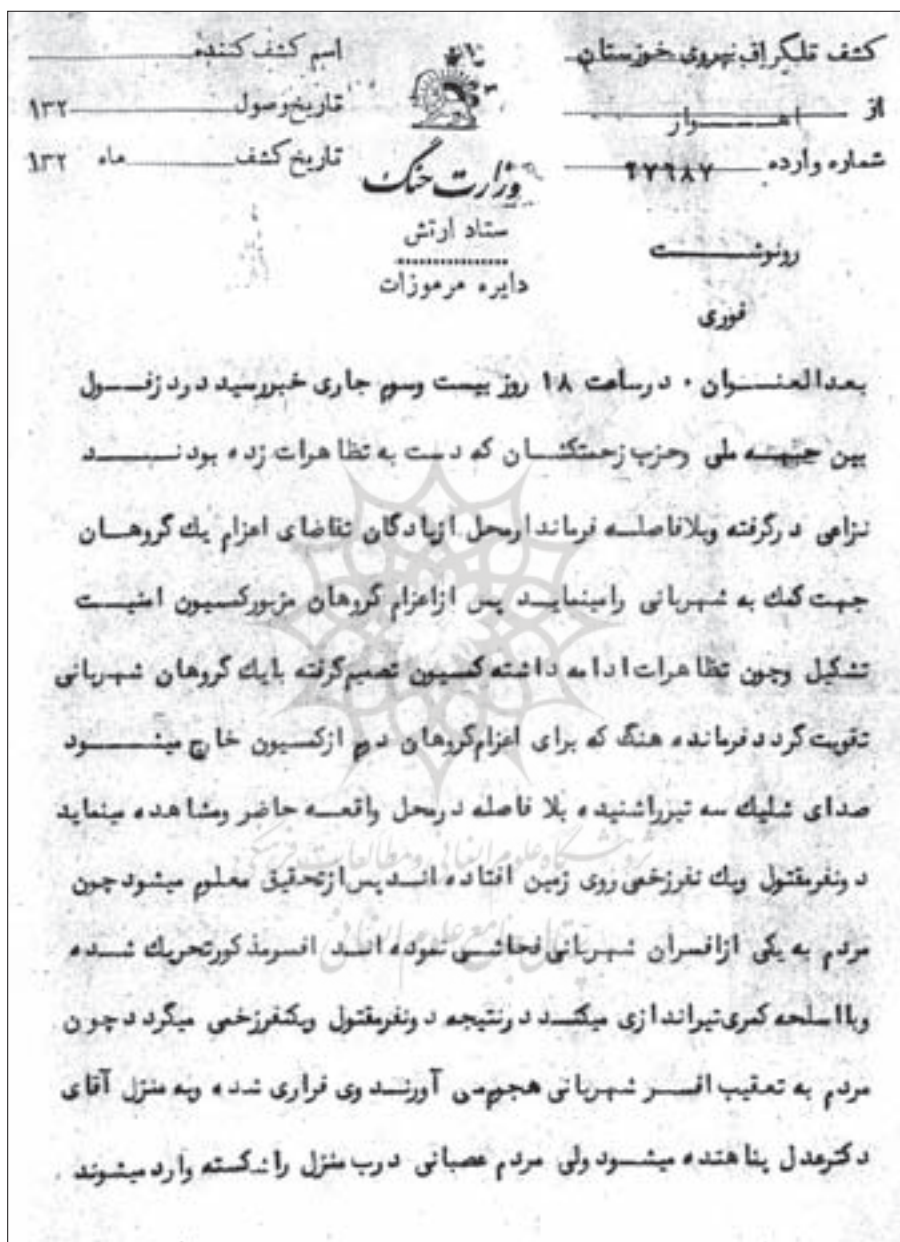 کشف تلگراف نیروی خوزستان
از اهـــواز
شماره وارده ۲۷۶۸۷
وزارت جنگ
ستاد ارتش
دایره مرموزات
اسم کشف کننده
تاریخ وصول ۱۳۲
تاریخ کشف ماه ۱۳۲
رونوشـــت
فوری
بعدالعنـــوان ۰ درساعت ۱۸ روز بیست وسوم جاری خبررسید دردزفـــول
بین جبهـه ملی وحزب زحمتکشـــان که دست به تظاهرات زده بودنـــد
نزاعی درگرفته وبلافاصلـه فرماندارمحل ازپادگان تقاضای اعزام یك گروهـــان
جهت کمك به شهربانی رامینمایـد پس ازاعزام گروهان مزبورکمسیون امنیـت
تشکیل وچون تظاهرات ادامه داشته کمسیون تصمیم گرفته بایك گروهان شهربانی
تقویت گردد فرمانده هنگ که برای اعزام گروهان دوم ازکمسیون خارج میشـــود
صدای شلیك سه تیرراشنیده بلا فاصله درمحل واقعـه حاضر ومشاهده مینماید
دونفرمقتول ویك نفرزخمی روی زمین افتاده انـد پس ازتحقیق معلوم میشود چون
مردم به یکی ازافسران شهربانی فحاشـی نموده انـد افسرمذکورتحریك شـده
وبااسلحه کمری تیراندازی میکنـد درنتیجه دونفرمقتول ویکنفرزخمی میگردد چون
مردم به تعقیب افسـر شهربانی هجوم می آورنـد وی فراری شده وبه منزل آقای
دکترعدل پناهنده میشـود ولی مردم عصبانی درب منزل راشکسته واردمیشوند
پژوهشگاه علوم انسانی و مطالعات فرهنگی
پرتال جامع علوم انسانی